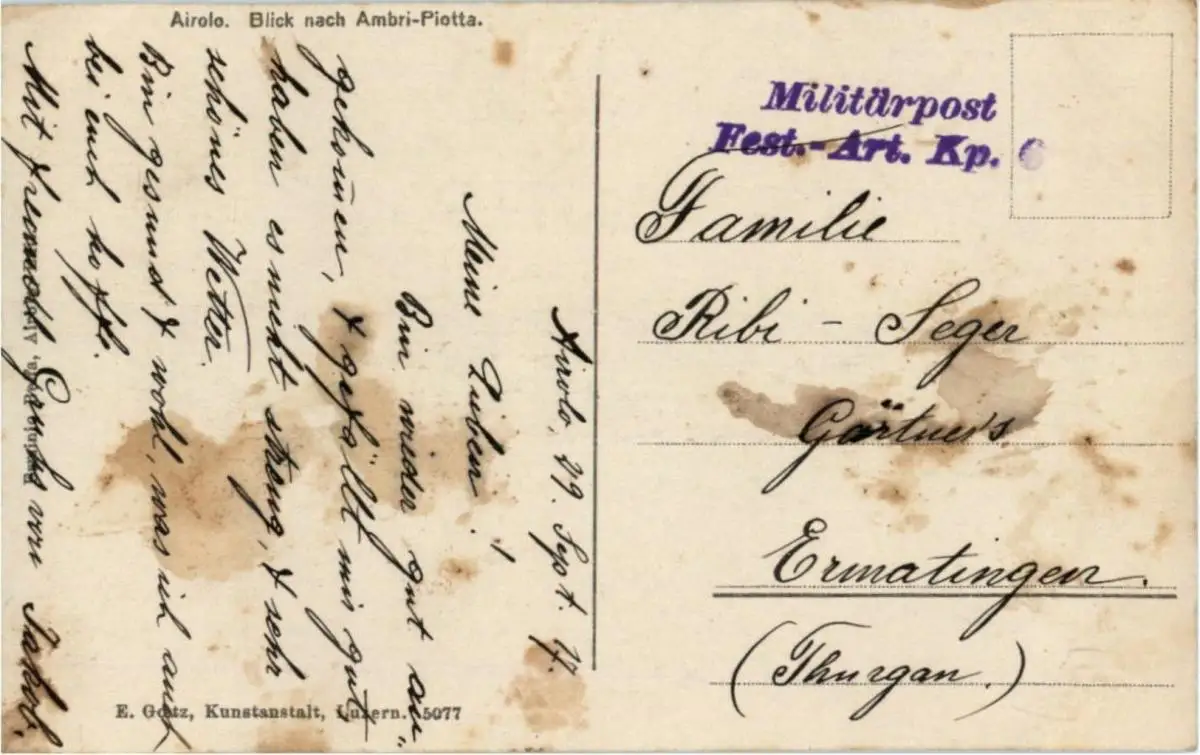 Airolo. Blick nach Ambri-Piotta.
Airolo, 29. Sept. 17.
Meine Lieben!
Bin wieder gut an-
gekom̄en, & gefällt mir gut
haben es nicht streng, & sehr
schönes Wetter.
Bin gesund & wohl, was ich auch
bei euch hoffe.
Mit freundl. Gruss von Jakob.
E. Goetz, Kunstanstalt, Luzern. 5077
Militärpost
Fest.-Art. Kp. 6
Familie
Ribi - Seger
Gärtner's
Ermatingen.
(Thurgau.)